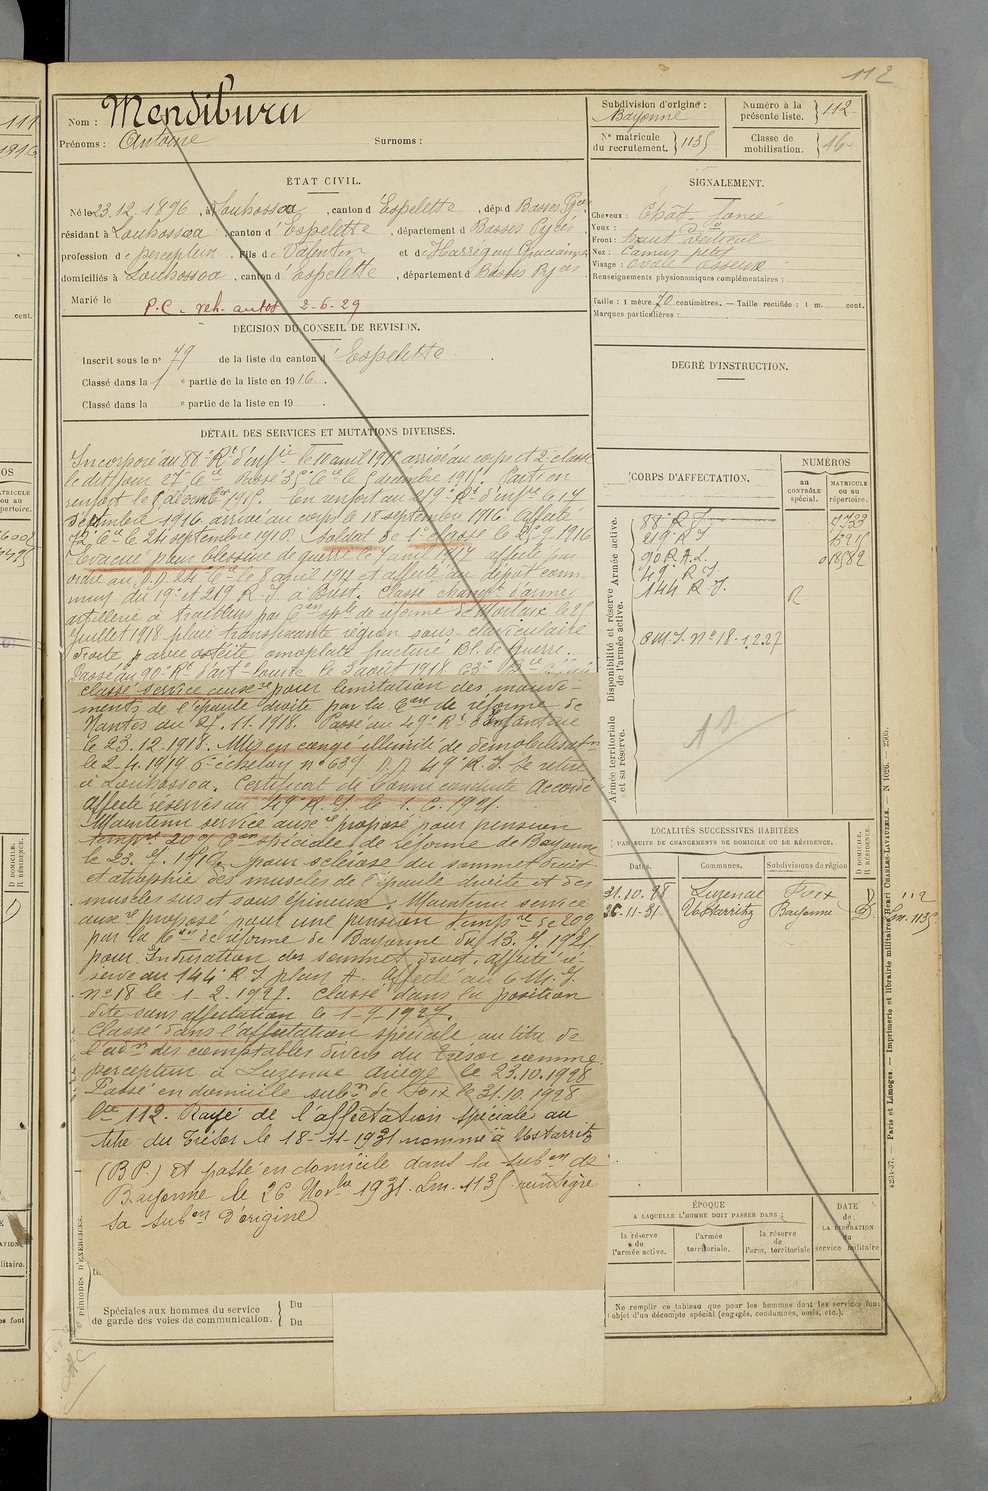 112
Nom : Mendiburu
Prénoms : Antoine Surnoms :
Subdivision d'origine : Bayonne
Numéro à la présente liste. 112
N° matricule du recrutement. 1135
Classe de mobilisation. 16
ÉTAT CIVIL.
Né le 23.12.1896, à Louhossoa, canton d'Espelette, dép. d Basses Pyées,
résidant à Louhossoa, canton d'Espelette, département d Basses Pyées,
profession de perceptein. Fils de Valentin et de Harréguy Gracianne
domiciliés à Louhossoa, canton d'Espelette, département d Basses Pyées
Marié le
P.C. reh. autos 2-6-29
DÉCISION DU CONSEIL DE REVISION.
Inscrit sous le n° 79 de la liste du canton d'Espelette.
Classé dans la 1e partie de la liste en 1916.
Classé dans la e partie de la liste en 19 .
SIGNALEMENT.
Cheveux : Chât- foncé
Yeux : do
Front : haut
Nez : Camus
Visage : ovale osseux
Renseignements physionomiques complémentaires :
Taille : 1 mètre 70 centimètres. — Taille rectifiée : 1 m. cent.
Marques particulières :
DEGRÉ D'INSTRUCTION.
DÉTAIL DES SERVICES ET MUTATIONS DIVERSES.
Incorporé au 88e Rt d'infie le 10 avril 1915 arrivé au corps et 2e classe
le dit jour 27e Cie Passé 35e Cie le 5 décembre 1915. Parti en
renfort le 8 décembre 1915. En renfort au 219e Rt d'infrie le 17
septembre 1916 arrivé au corps le 18 septembre 1916 affecté
le 24 septembre 1916. Soldat de 1e classe le 25-9-1916
Evacué pour blessure de guerre le 7 avril 1917 affecté par
ordre au D.D. 24e Cie le 8 avril 1917 et affecté au dépôt com-
mun du 19e et 219 R.I. à Brest. Classé changt d'armes
artillerie à tracteurs par Con sple de réforme de Morlaix le 25
juillet 1918 plaie transfixante région sous-claviculaire
droite p. avec ostéite omoplate fracturé Bl. de Guerre.
Passé au 90e Rt d'arte lourde le 3 août 1918 63e Bie
classé service auxre pour limitation des mouve-
ments de l'épaule droite par la Con de réforme de
Nantes du 27.11.1918. Passé au 49e Rt d'Infanterie
le 23.12.1918. Mis en congé illimité de démobilisatn
le 2-4-1919 6e échelon n° 639 D.D 49e R.I. se retire
à Louhossoa. Certificat de bonne conduite Accordé
affecté réserves au 49e R.I. le 1.6.1921.
Maintenu service auxre proposé pour pension
tempre 20% Con spéciale de réforme de Bayonne
le 23. pour sclérose du sommet droit
et atrophie des muscles de l'épaule droite et des
muscles sus et sous épineux. Maintenu service
auxre proposé pour une pension tempre de 20%
par la Con de réforme de Bayonne du 13.
pour Induration du sommet droit. affecté ré-
serve au 144e R.I. plan A. Affecté au C.M.I.
n° 18 le 1-2.1927. Classé dans la position
dite sans affectation le 1-9 1927.
Classé dans l'affectation spéciale au titre de
l'adon des comptables divers du Trésor comme
percepteur à Luzenac Ariège le 23.10.1928
Passé en domicile subon de Foix le 31.10.1928
112. Rayé de l'affectation spéciale au
titre du Trésor le 18-11-1931 nommé à Ustarritz
(B P.) et passé en domicile dans la subon de
Bayonne le 26 Novbre 1931. Lm. 1135 réintègre
sa subon d'origine
CORPS D'AFFECTATION.
NUMÉROS
au CONTRÔLE spécial.
MATRICULE ou au répertoire.
Disponibilité et réserve Armée active. de l'armée active.
88e R.I.
219e R I
90 R.A.L.
49e R I
144 R.I. R.
CMI. n° 18. 1.2.27
Armée territoriale et sa réserve.
LOCALITÉS SUCCESSIVES HABITÉES
PAR SUITE DE CHANGEMENTS DE DOMICILE OU DE RÉSIDENCE.
Dates. Communes. Subdivisions de région D DOMICILE. R RÉSIDENCE.
31.10.28 Luzenac Foix D 112
26-11-31 Ustarritz Bayonne D Lm. 1135
ÉPOQUE
A LAQUELLE L'HOMME DOIT PASSER DANS :
la réserve de l'armée active.
l'armée territoriale.
la réserve de l'arm. territoriale
DATE de LA LIBÉRATION du service militaire
Ne remplir ce tableau que pour les hommes dont les services font
l'objet d'un décompte spécial (engagés, condamnés, omis, etc.).
PÉRIODES D'EXERCICES.
Spéciales aux hommes du service
de garde des voies de communication. Du
Du
4231-37. — Paris et Limoges. — Imprimerie et librairie militaires Henri CHARLES-LAVAUZELLE. — N 1026. — 2506.